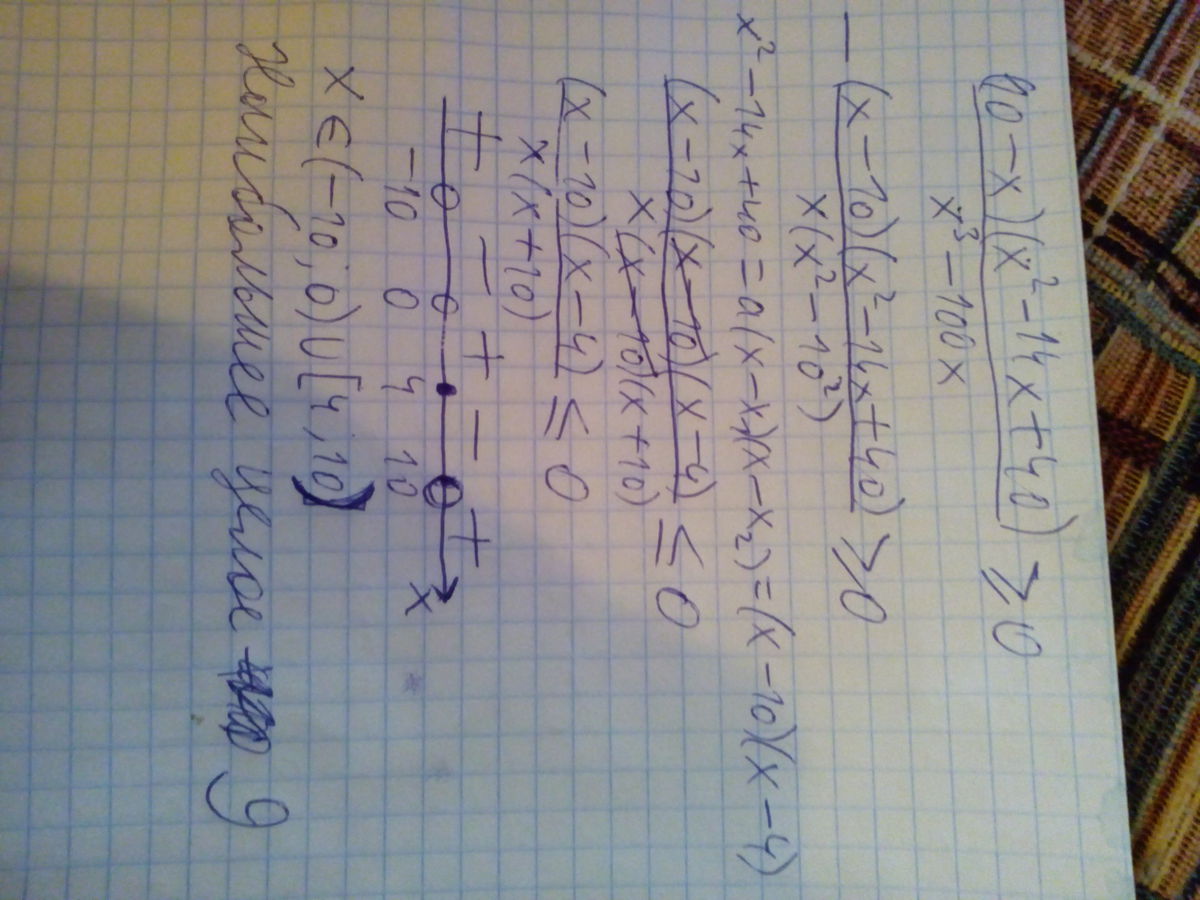 (10-x)(x²-14x+40)
x³-100x
≥ 0
- (x-10)(x²-14x+40)
x(x²-10²)
≥ 0
x²-14x+40 = a(x-x₁)(x-x₂) = (x-10)(x-4)
(x-10)(x-10)(x-4)
x(x-10)(x+10)
≤ 0
(x-10)(x-4)
x(x+10)
≤ 0
+ - + - +
-10 0 4 10 x
x ∈ (-10; 0) ∪ [4; 10)
Наибольшее целое - 9